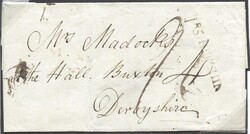 Mrs Madocks
at the Hall. Buxton
Derbyshire